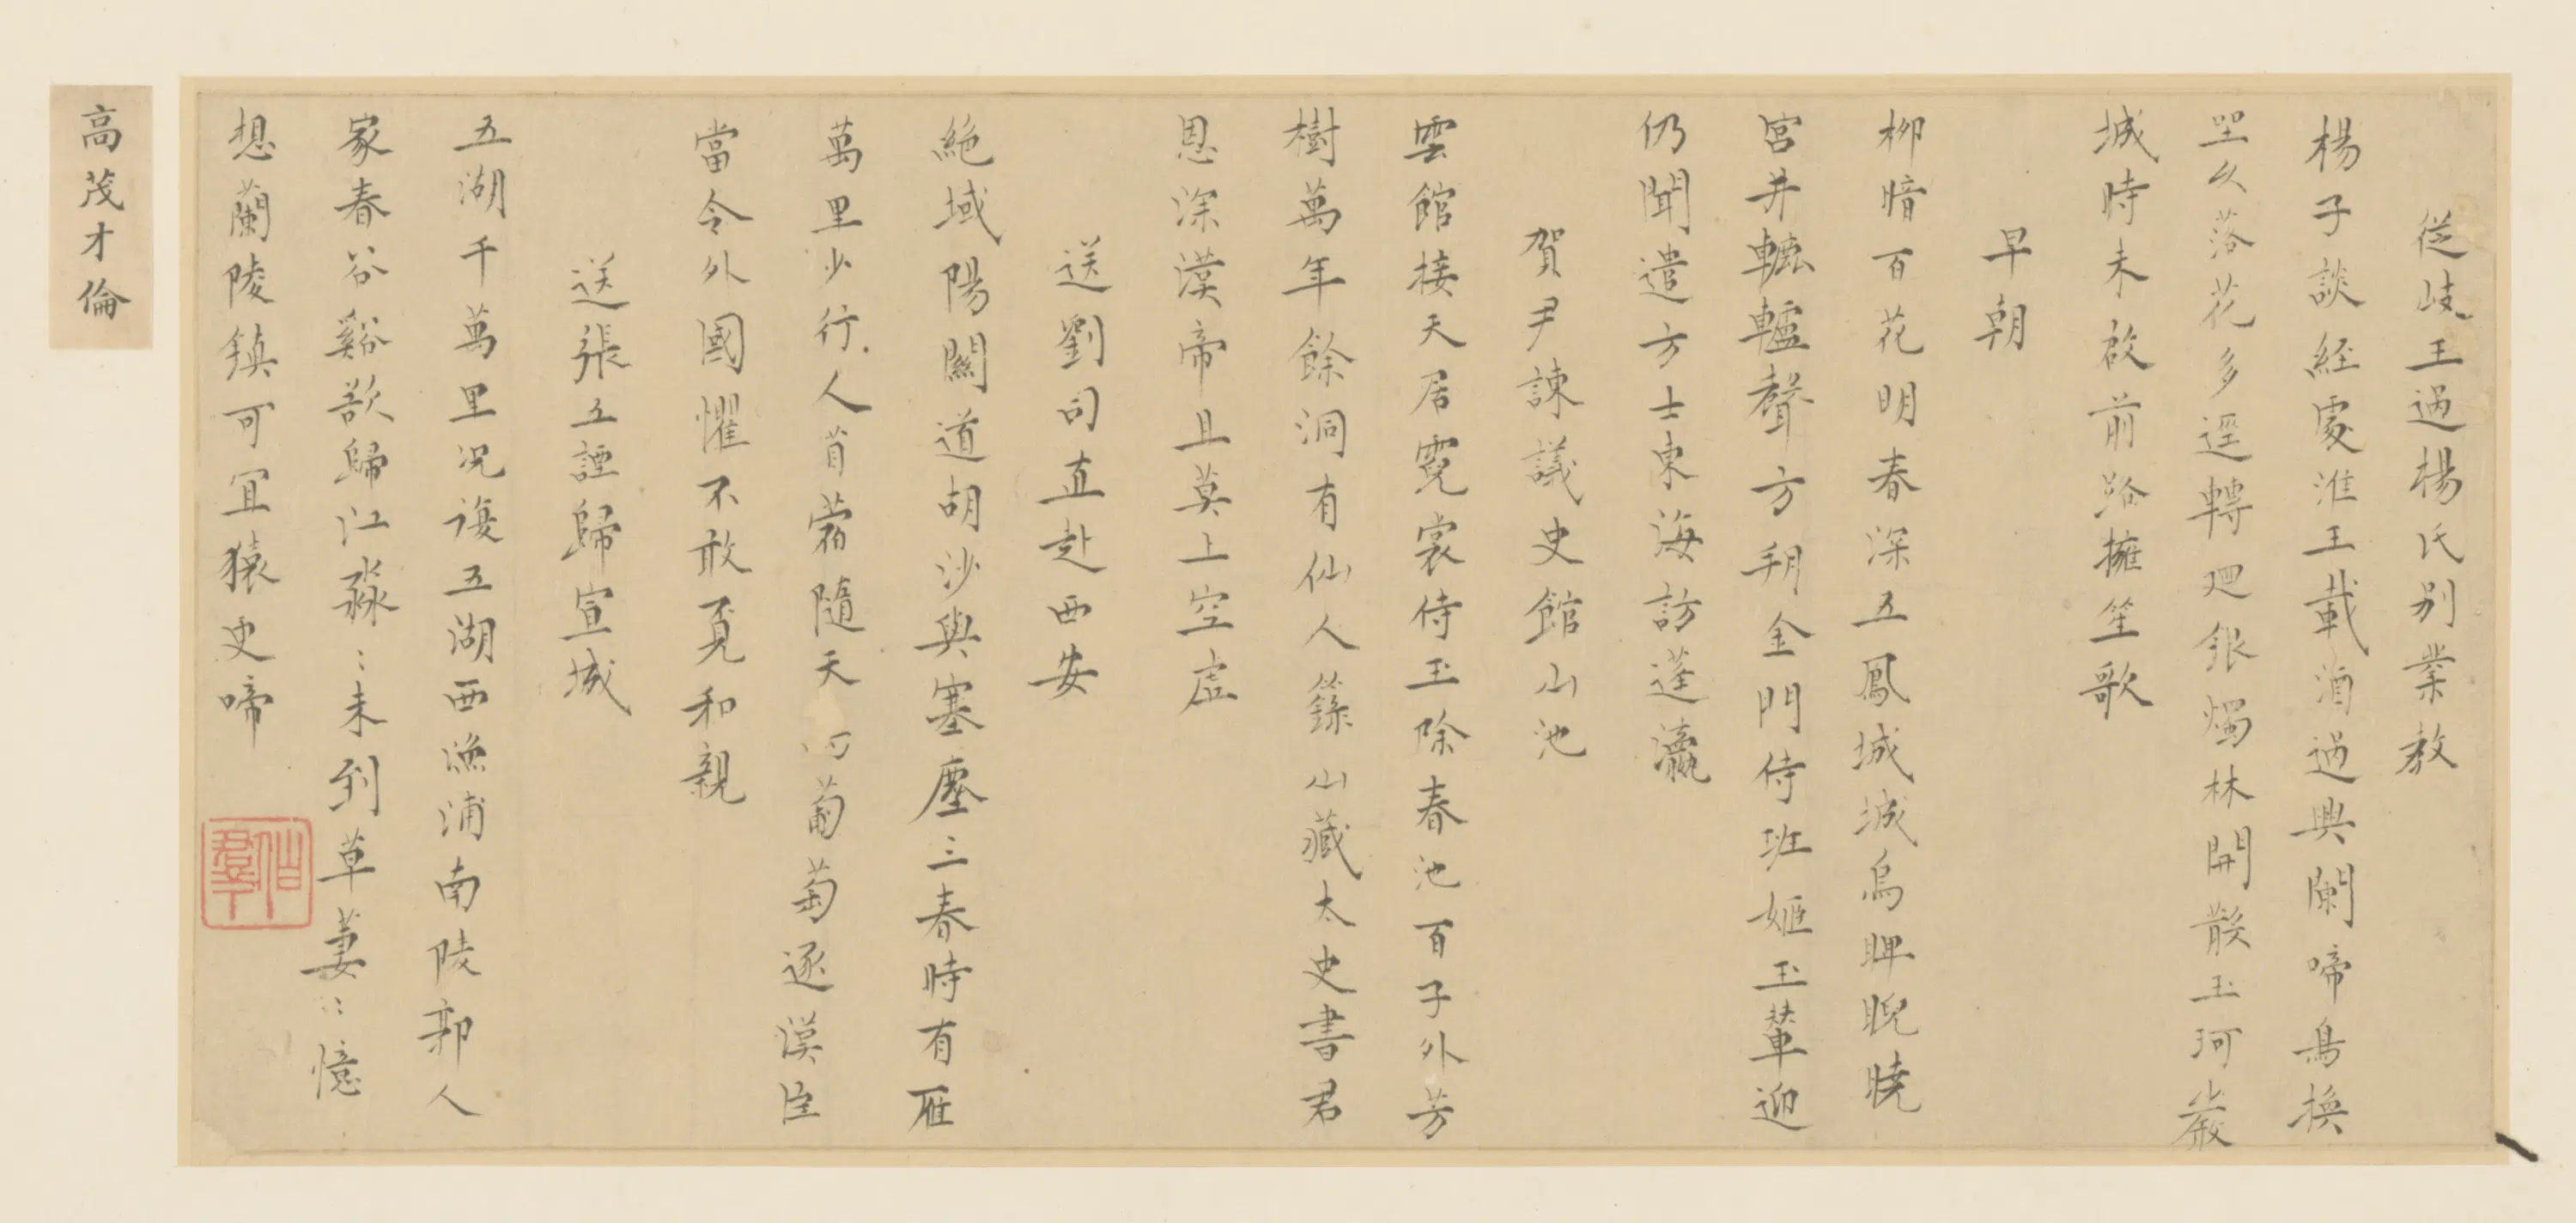 從岐王過楊氏别業教
楊子談経處淮王載酒過興闌啼鳥換
坐久落花多逕轉廻銀燭林開散玉珂嚴
城時未啟前路擁笙歌
早朝
柳暗百花明春深五鳳城城烏睥睨曉
宮井轆轤聲方朔金門侍班姬玉輦迎
仍聞遣方士東海訪蓬瀛
賀尹諫議史館山池
雲館接天居霓裳侍玉除春池百子外芳
樹萬年餘洞有仙人籙山藏太史書君
恩深漢帝且莫上空虛
送劉司直赴西安
絶域陽關道胡沙與塞塵三春時有雁
萬里少行人苜蓿隨天河葡萄逐漢臣
當令外國懼不敢覔和親
送張五諲歸宣城
五湖千萬里况復五湖西漁浦南陵郭人
家春谷谿欲歸江淼〻未到草萋〻憶
想蘭陵鎮可宜猿史啼
高茂才倫